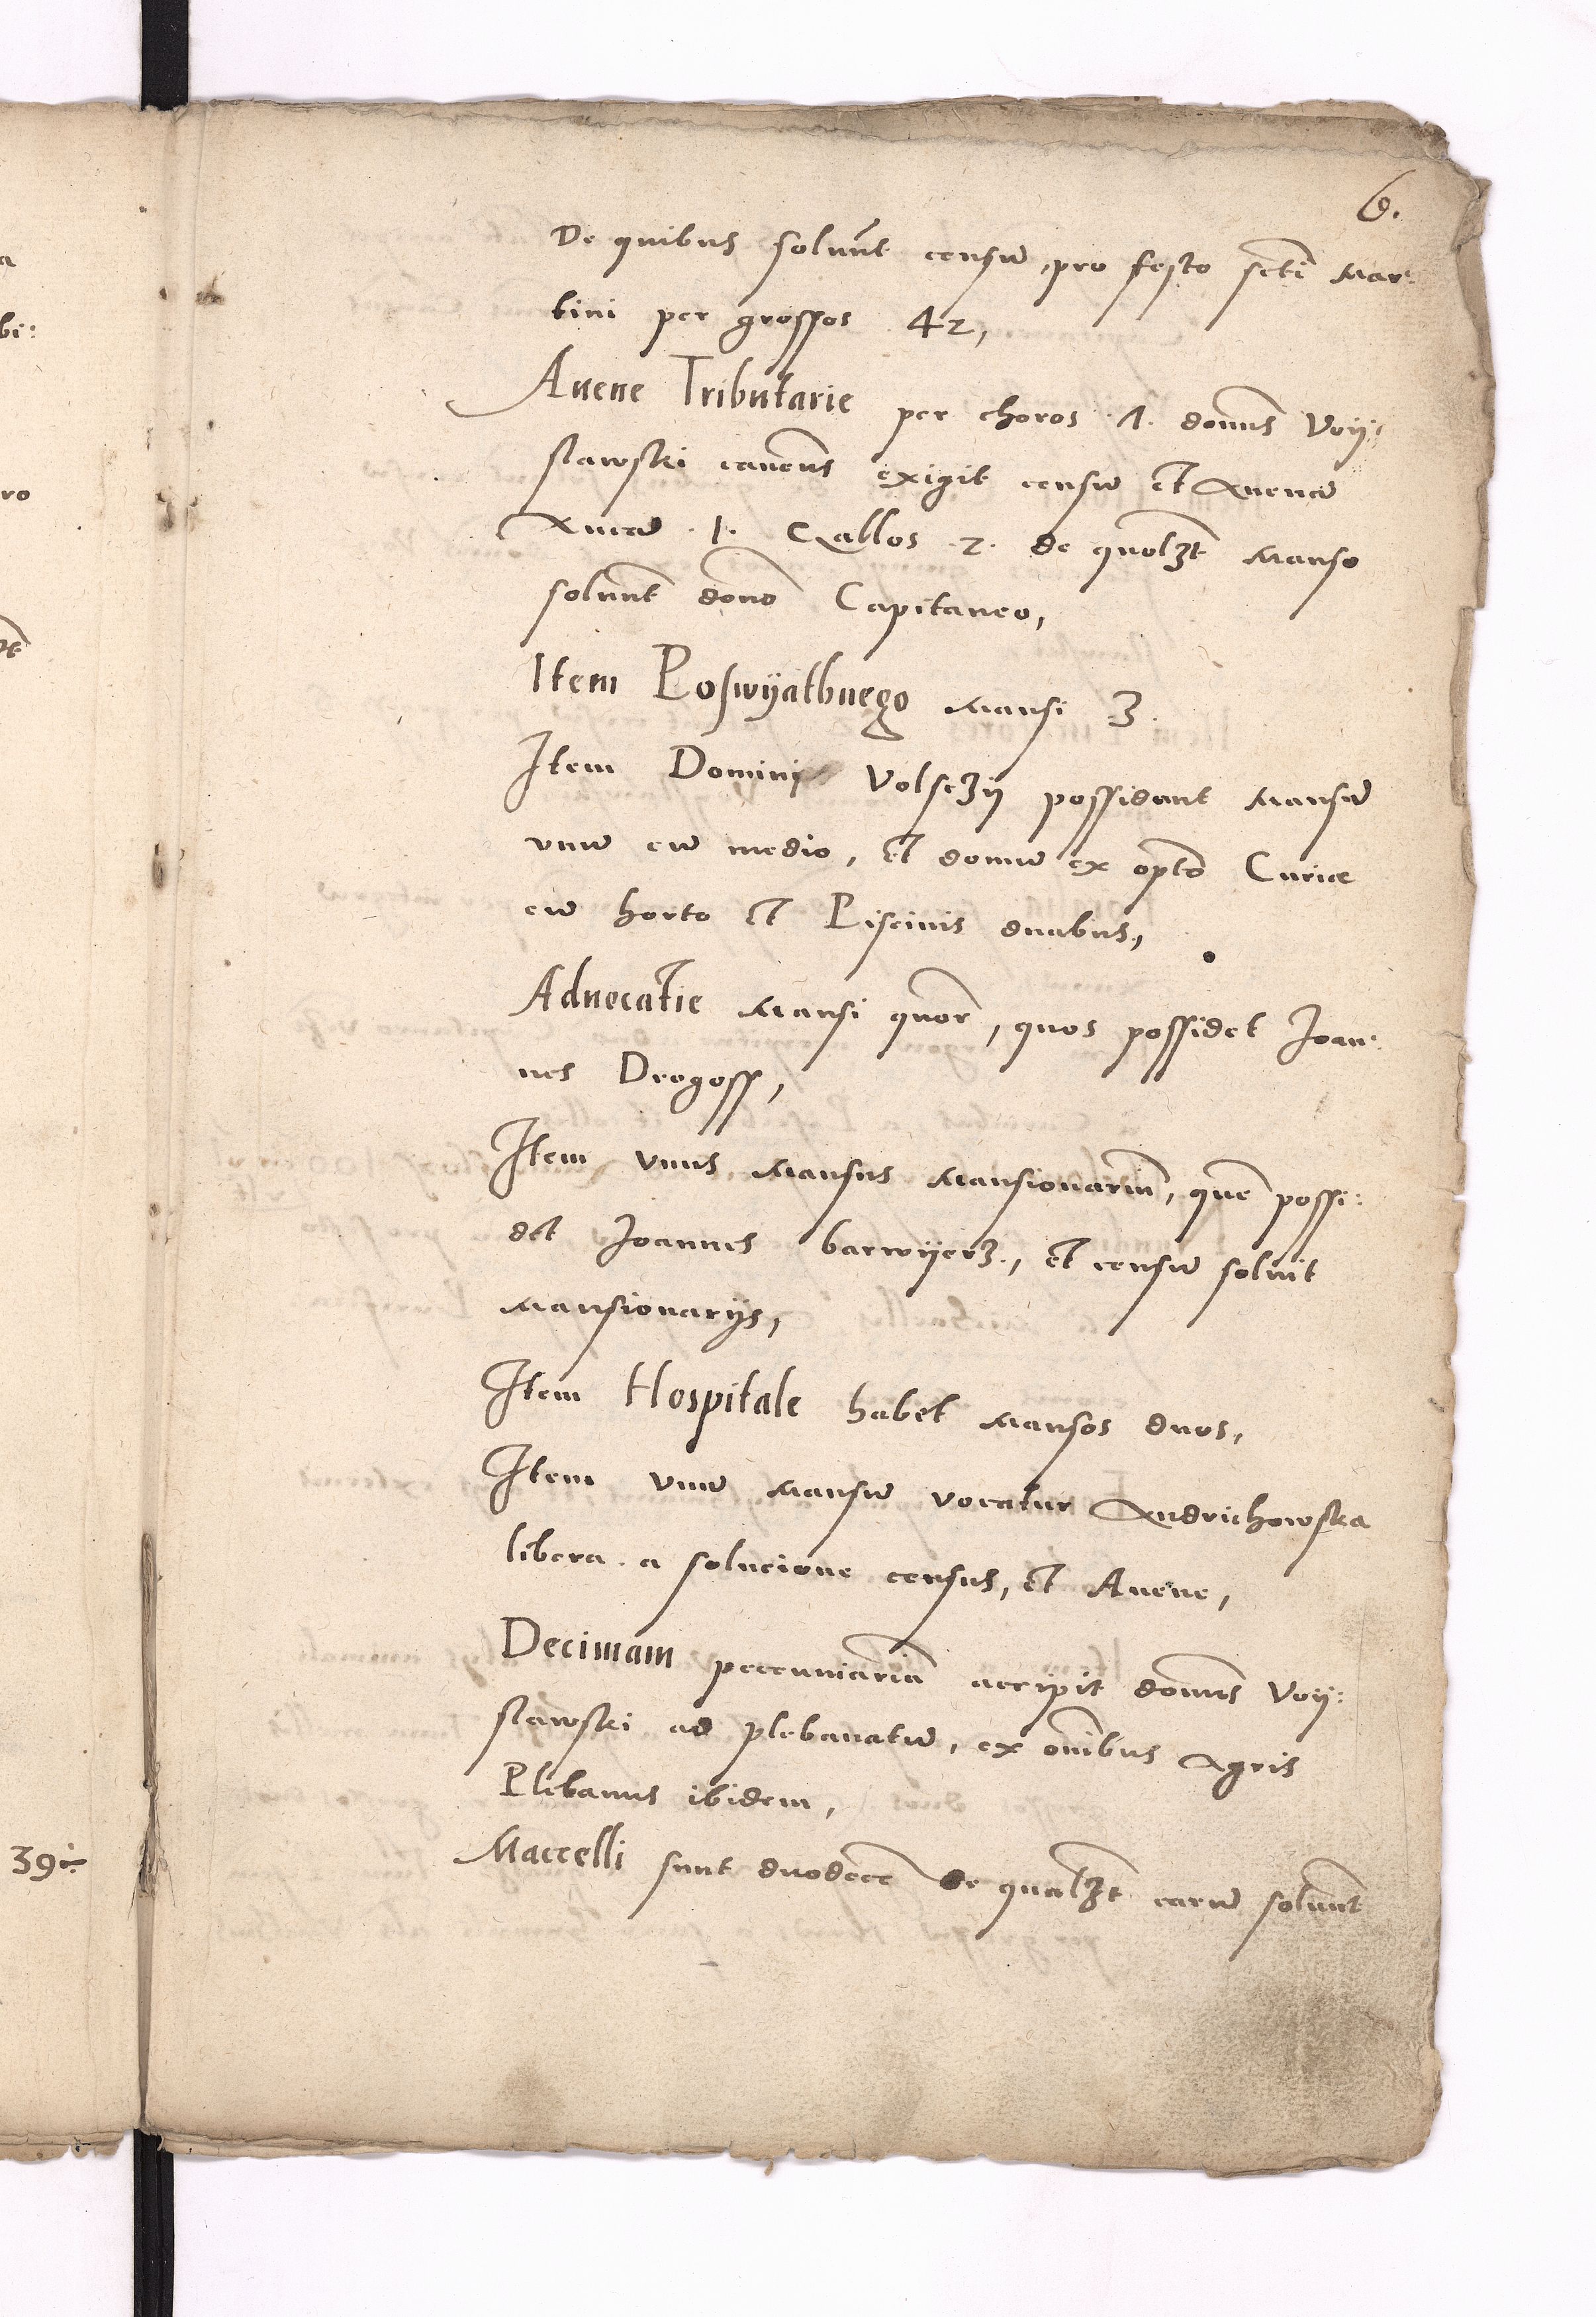 6.
De quibus soluut censu pro festo scti Mar:
tini per grossos 42,
Auene Tributarie per choros 1. domus Voy:
slawski canonus exigit censu et Auena
Auca 1. Gallos 2. de quolzt Manso
soluut dono Capitaneo,
Item Poswyatbnego Mansi 3.
Item Domini Volsczy possidunt Mansu
vnu cu medio, et domu ex opto Curie
cu horto et Piscinis duabus,
Aduocatie Mansi quor, quos possidet Joan:
nes Drogoss,
Item vnus Mansus Mansionariu, que possi:
det Joannes barwyerz, et censu soluit
Mansionarys,
Item Hospitale habet Mansos duos,
Item vnu Mansu vocatur Andrichowska
libera a solucione census, et Auene,
Decimam peccuniaria accipit domus Voy:
slawski ad plebanatu, ex omibus Agris
Plebanus ibidem,
Maccelli sunt duodece de qualzt earu soluut
a
bi:
ro
39